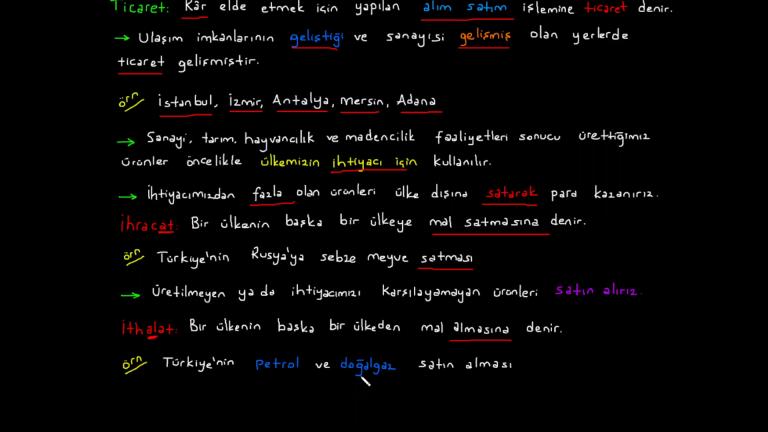 Ticaret: Kâr elde etmek için yapılan alım satım işlemine ticaret denir.
→ Ulaşım imkanlarının geliştiği ve sanayisi gelişmiş olan yerlerde
ticaret gelişmiştir.
örn İstanbul, İzmir, Antalya, Mersin, Adana
→ Sanayi, tarım, hayvancılık ve madencilik faaliyetleri sonucu ürettiğimiz
ürünler öncelikle ülkemizin ihtiyacı için kullanılır.
→ İhtiyacımızdan fazla olan ürünleri ülke dışına satarak para kazanırız.
İhracat: Bir ülkenin başka bir ülkeye mal satmasına denir.
örn Türkiye'nin Rusya'ya sebze meyve satması
→ Üretilmeyen ya da ihtiyacımızı karşılayamayan ürünleri satın alırız.
İthalat: Bir ülkenin başka bir ülkeden mal almasına denir.
örn Türkiye'nin petrol ve doğalgaz satın alması